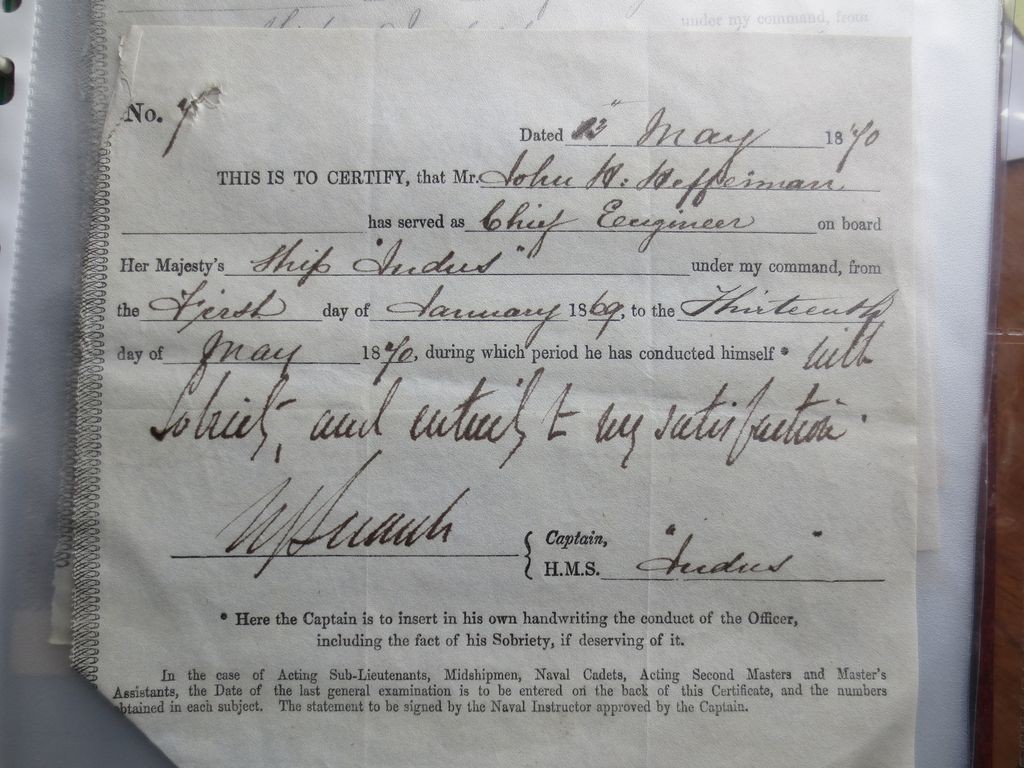 under my command, from
No.
Dated 13" May 1870
THIS IS TO CERTIFY, that Mr. John H. Heffernan
has served as Chief Engineer on board
Her Majesty's Ship "Indus" under my command, from
the First day of January 1869, to the Thirteenth
day of May 1870, during which period he has conducted himself * with
Sobriety, and entirely to my satisfaction.
Captain,
H.M.S. "Indus"
* Here the Captain is to insert in his own handwriting the conduct of the Officer,
including the fact of his Sobriety, if deserving of it.
In the case of Acting Sub-Lieutenants, Midshipmen, Naval Cadets, Acting Second Masters and Master's
Assistants, the Date of the last general examination is to be entered on the back of this Certificate, and the numbers
obtained in each subject. The statement to be signed by the Naval Instructor approved by the Captain.